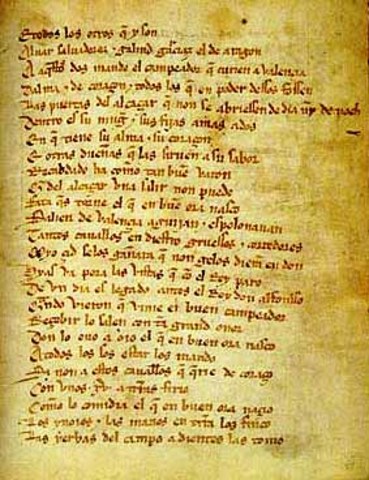 E todos los otros q̃ y son
Aluar saluadorez · galind garçiaz el de aragon
A aq̃stos dos mando el campeador q̃ curien a valençia
Dalma · de coraçon · todos los q̃ en poder dessos fossen
Las puertas del alcaçar q̃ non se abriessen de dia nȷ̃ de noch
Dentro es su mugȷ̃ · sus fijas amas ados
En q̃ tiene su alma · su coraçon
E otras dueñas q̃ las siruen a su sabor
Recabdado ha como tan buẽ varon
Q̃ del alcaçar vna salir non puede
Fata q̃s torne el q̃ en buẽ ora nasco
Salien de valençia aguijan · espolonauan
Tantos cauallos en diestro gruessos · corredores
Myo çid selos gañara q̃ non gelos dierã en don
Hyas va pora las vistas q̃ cõ el Rey paro
De vn dia es legado antes el Rey don alfonsso
Q̃ndo vieron q̃ vinie el buen campeador
Reçebir lo salen con tã grand onor
Don lo ouo a oio el q̃ en buen ora nasco
Atodos los sos estar los mando
Si non a estos cauallos q̃ q̃rie de coraçõ
Con vnos ·xv· a tr̃ras firio
Com̃o lo comidia el q̃ en buen ora naçio
Los ynoios · las manos en tr̃ra los finco
Las yerbas del campo a dientes las tomo